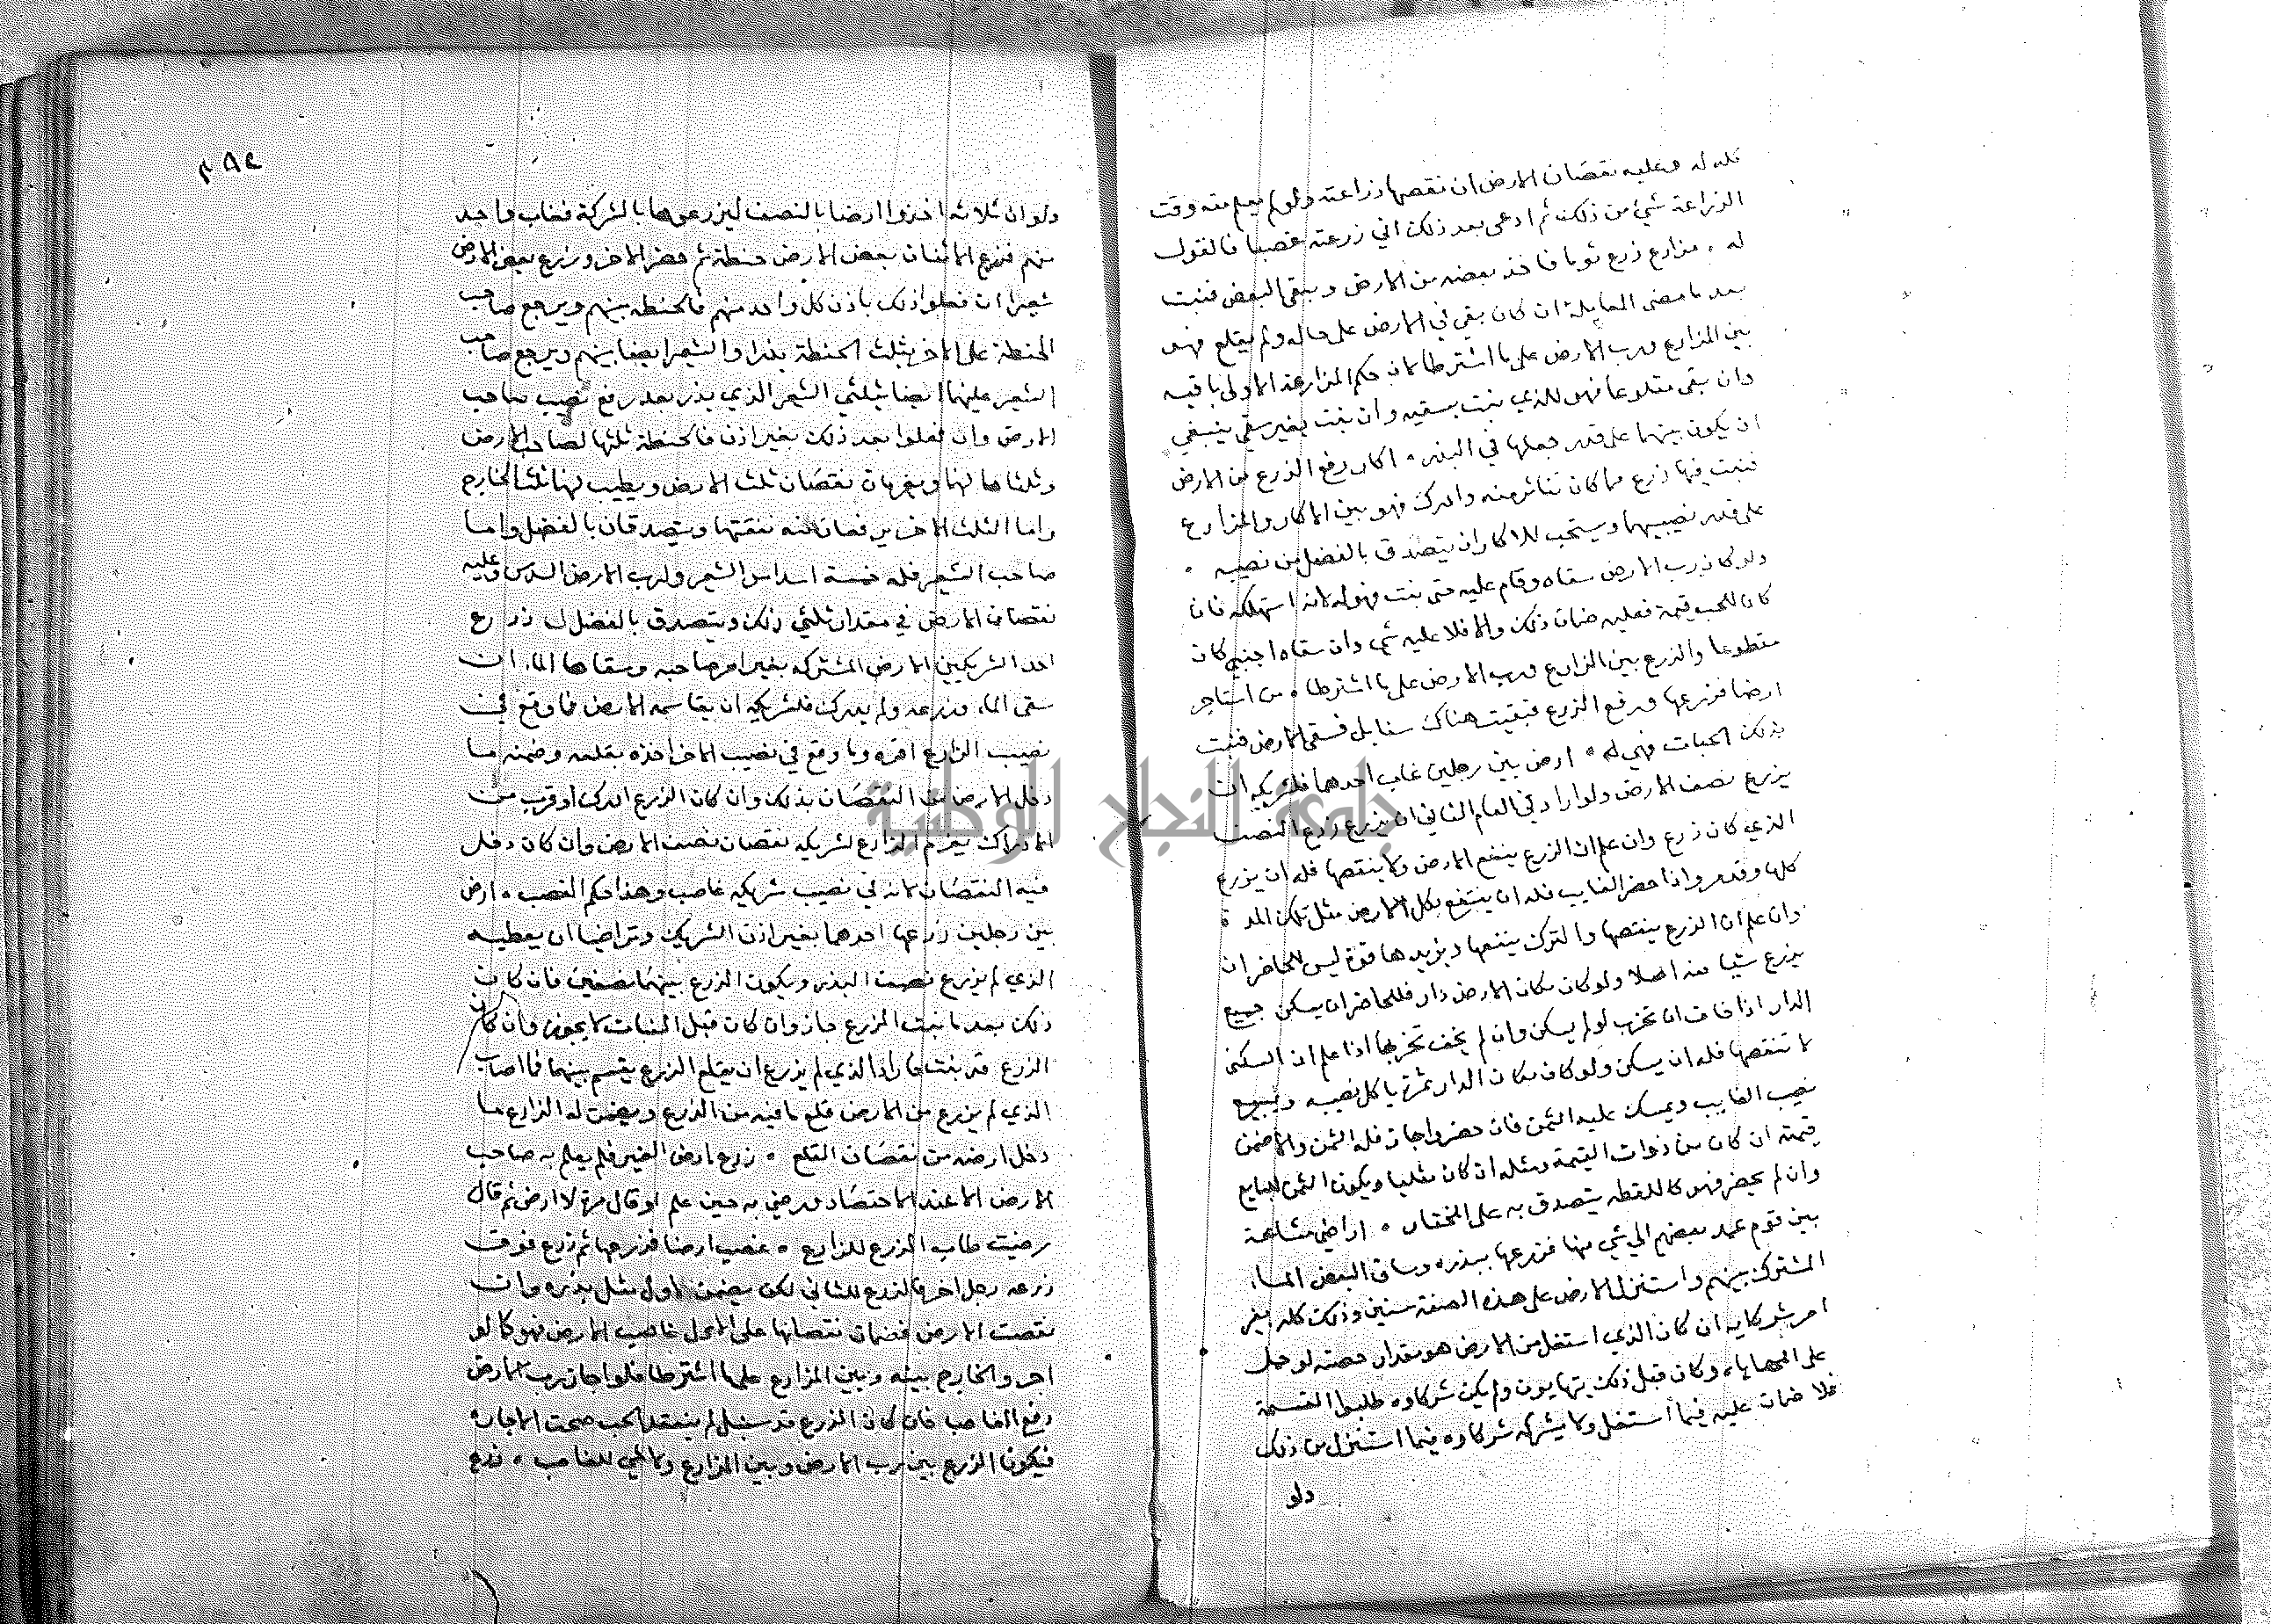 فله له وعليه نقصان الارض ان نقصها زراعته ولو لم يعلم منه وقت
الزراعة شيء من ذلك ثم ادعى بعد ذلك اني زرعته غصبا فالقول
له . مزارع زرع ثوما فاخذ بعضه من الارض وبقى البعض فنبت
بعد ما مضى المعاملة ان كان بقي في الارض على حاله ولم يقلع فهو
بين المزارع ورب الارض على ما اشترطا لان حكم المزارعة الاولى باقيه
وان بقى مقلوعا فهو للذي نبت بسقيه وان نبت بغير سقي ينبغي
ان يكون بينهما على قدر حملها في البذر . اكار رفع الزرع من الارض
فنبت فيها زرع مما كان تناثر منه وادرك فهو بين الاكار والمزارع
على قدر نصيبيهما ويستحب للاكار ان يتصدق بالفضل من نصيبه .
ولو كان رب الارض سقاه وقام عليه حتى نبت فهو له لانه استهلكه فان
كان للحب قيمة فعليه ضمان ذلك والا فلا عليه شي وان سقاه اجنبي كان
متطوعا والزرع بين الزارع ورب الارض على ما اشترطا . من استاجر
ارضا فزرعها ورفع الزرع فبقيت هناك سنابل فسقى الارض فنبت
بذلك الحبات فهي له . ارض بين رجلين غاب احدهما فلشريكه ان
يزرع نصف الارض ولو اراد في العام الثاني ان يزرع زرع النصف
الذي كان زرع وان علم ان الزرع ينفع الارض ولا ينقصها فله ان يزرع
كلها وقدم واذا حضر الغايب فله ان ينتفع بكل الارض مثل تلك المدة
وان علم ان الزرع ينقصها والترك ينفعها ويزيدها قوة ليس للحاضر ان
يزرع شيا منه اصلا ولو كان مكان الارض دار فللحاضر ان يسكن جميع
الدار اذا خاف ان تخرب لو لم يسكن وان لم يخف تخربها اذا علم ان السكنى
لا تنقصها فله ان يسكن ولو كان مكان الدار ثمرة ياكل نصيبه ويبيع
نصيب الغايب ويمسك عليه الثمن فان حضر واجاز فله الثمن والا ضمن
قيمته ان كان من ذوات القيمة ومثله ان كان مثليا ويكون الثمن للبايع
وان لم يحضر فهو كاللقطه يتصدق به على المختار . اراضي مشاعة
بين قوم عمد بعضهم الى شي منها فزرعها ببذره وساق البعض الماء
المشترك بينهم واستنزل الارض على هذه الصفة سنين وذلك كله بغير
امر شركايه ان كان الذي استغل من الارض هو مقدار حصته لو حمل
على المهاياه وكان قبل ذلك يتهايون ولم يكن شركاوه طلبوا القسمة
فلا ضمان عليه فيما استغل ولا يشركه شركاوه فيما استنزل من ذلك
ولو
٢٨٤
ولو ان ثلاثه اخذوا ارضا بالنصف ليزرعوها بالشركة فغاب واحد
منهم فزرع الاثنان بعض الارض حنطة ثم حضر الاخر وزرع بعض الارض
شعيرا ان فعلوا ذلك باذن كل واحد منهم فالحنطه بينهم ويرجع صاحب
الحنطة على الاخر بثلث الحنطة بذرا والشعير ايضا بينهم ويرجع صاحب
الشعير عليهما ايضا بثلثي الشعير الذي بذر بعد رفع نصيب صاحب
الارض وان فعلوا بعد ذلك بغير اذن فالحنطة ثلثها لصاحب الارض
وثلثاها لهما ويغرمان نقصان ثلث الارض ويطيب لهما ثلثا الخارج
واما الثلث الاخر يرفعان منه نفقتها ويتصدقان بالفضل واما
صاحب الشعير فله خمسة اسداس الشعير ولرب الارض السدس وعليه
نقصان الارض في مقدار ثلثي ذلك ويتصدق بالفضل زرع
احد الشريكين الارض المشتركه بغير امر صاحبه وسقاها الماء ان
سقى الماء وزرعه ولم يدرك فلشريكه ان يقاسمه الارض فما وقع في
نصيب الزارع اقره وما وقع في نصيب الاخر اخذه بقلعه وضمنه ما
دخل الارض من النقصان بذلك وان كان الزرع ادرك او قرب من
الادراك يغرم الزارع لشريكه نقصان نصف الارض وان كان دخل
فيه النقصان لانه في نصيب شريكه غاصب وهذا حكم الغصب . ارض
بين رجلين زرعها احدهما بغير اذن الشريك وتراضيا ان يعطيه
الذي لم يزرع نصف البذر ويكون الزرع بينهما نصفين فان كان
ذلك بعد ما نبت الزرع جاز وان كان قبل النبات لا يجوز وان كان
الزرع قد نبت فاراد الذي لم يزرع ان يقلع الزرع يقسم بينهما فما اصاب
الذي لم يزرع من الارض قلع ما فيه من الزرع ويضمن له الزارع ما
دخل ارضه من نقصان القلع . زرع ارض الغير فلم يعلم به صاحب
الارض الا عند الاحتصاد ورضي به حين علم او قال مرة لا ارضى ثم قال
رضيت طاب الزرع للزارع . غصب ارضا فزرعها ثم زرع فوق
زرعه رجل اخر فالزرع للثاني لكن يضمن للاول مثل بذره وان
نقصت الارض فضمان نقصانها على الاول غاصب الارض فهو كالو
اجر والخارج بينه وبين المزارع على ما اشترطا فلو اجاز رب الارض
دفع الغاصب فان كان الزرع قد سنبل لم ينعقد الحب صحت الاجازه
فيكون الزرع بين رب الارض وبين المزارع ولا شي للغاصب . زرع
جامعة النجاح الوطنية